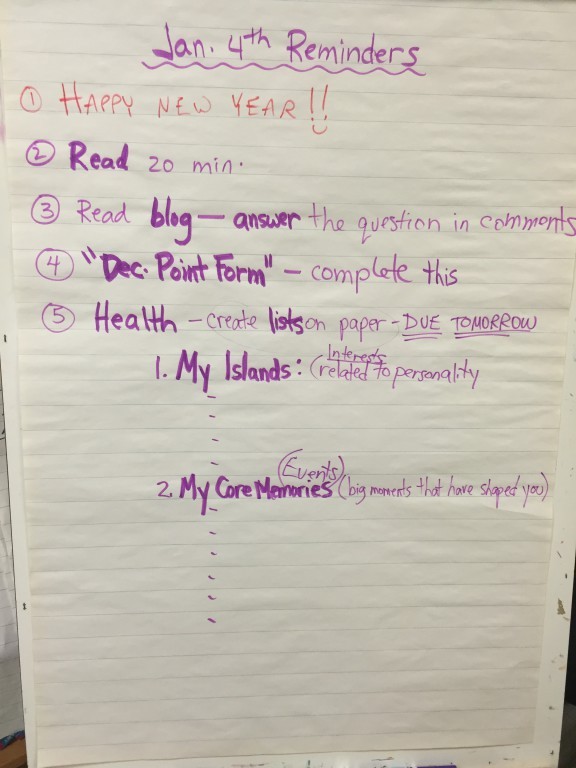 Jan. 4th Reminders
① HAPPY NEW YEAR!!
② Read 20 min.
③ Read blog — answer the question in comments
④ "Dec. Point Form" - complete this
⑤ Health - create lists on paper - DUE TOMORROW
Interests
1. My Islands: (related to personality
-
-
-
-
(Events)
2. My Core Memories (big moments that have shaped you)
-
-
-
-
-
-